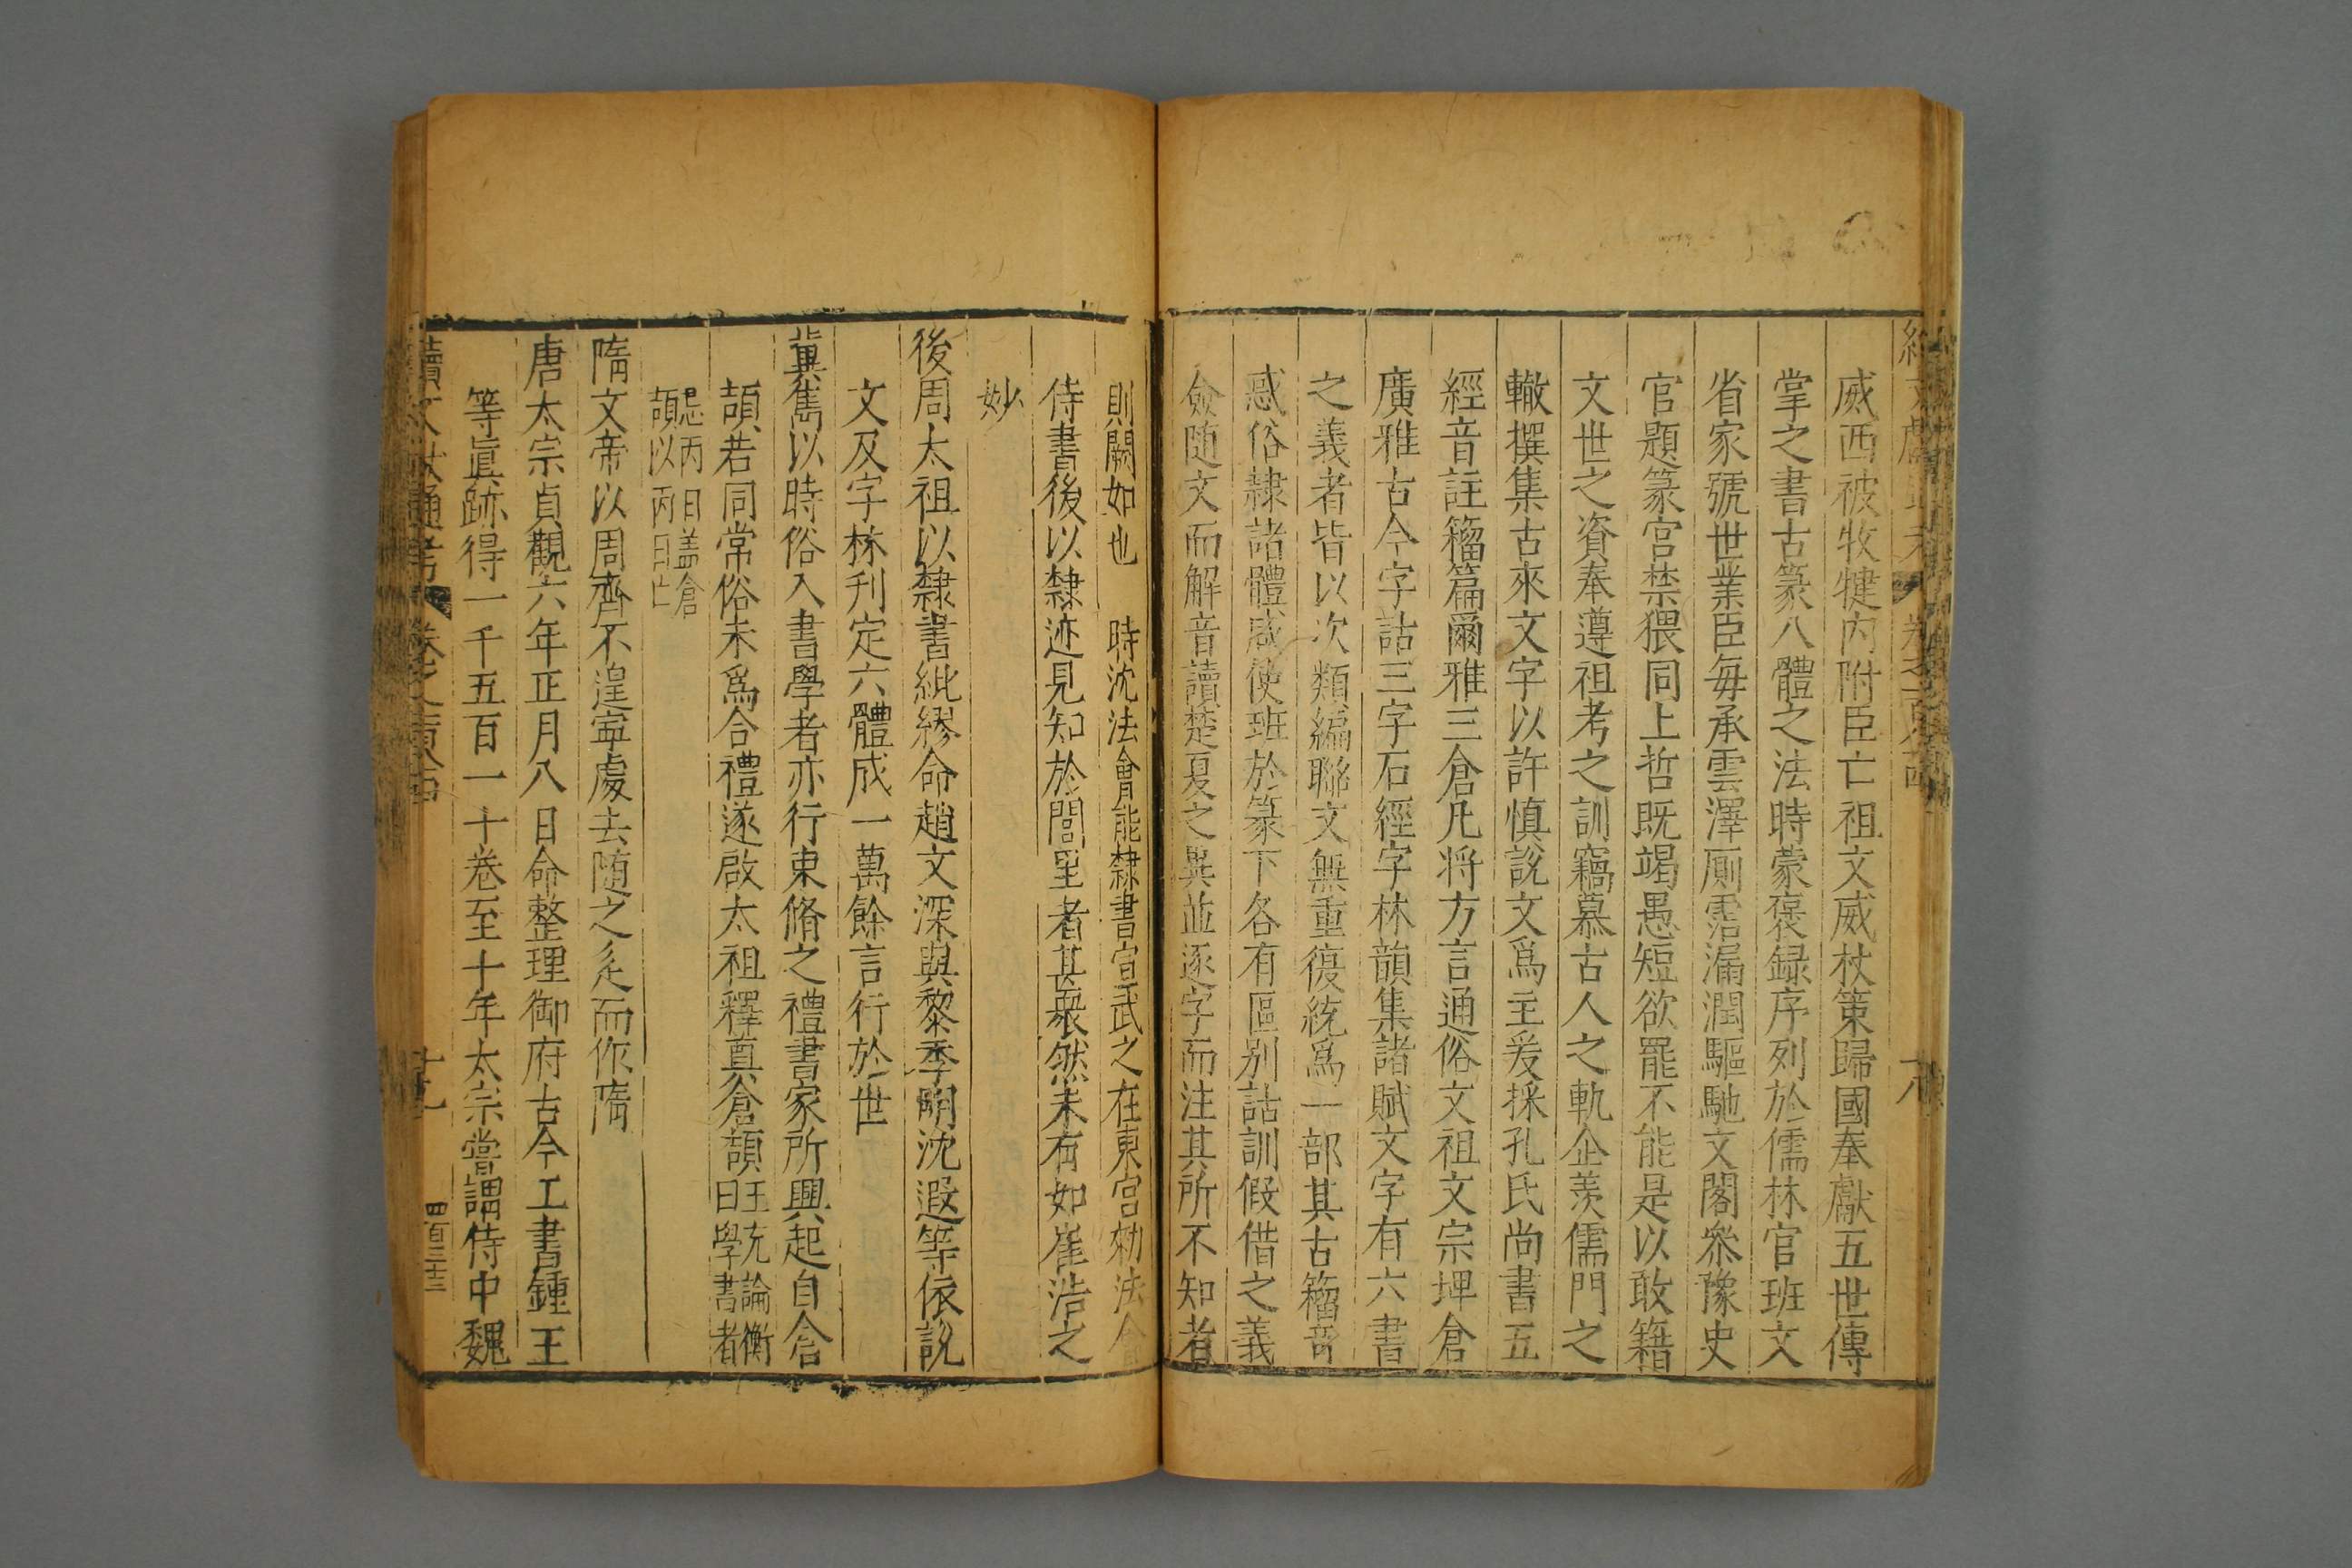 威西被牧犍内附臣亡祖文威杖策歸國奉獻五世傳
掌之書古篆八體之法時蒙褒録序列於儒林官班文
省家號世業臣毎承雲澤厠霑漏潤驅馳文閣叅豫史
官題篆宫禁猥同上哲既竭愚短欲罷不能是以敢籍
文世之資奉遵祖考之訓竊慕古人之軌企羨儒門之
轍撰集古來文字以許慎説文爲主爰採孔氏尚書五
經音註籀篇爾雅三倉凡将方言通俗文祖文宗埤倉
廣雅古今字詁三字石經字林韻集諸賦文字有六書
之義者皆以次類編聯文無重復統爲一部其古籀竒
惑俗隷諸體咸使班於篆下各有區别詁訓假借之義
僉随文而解音讀楚夏之異並逐字而注其所不知者
則闕如也 時沈法會能隷書宣武之在東宫勑法會
侍書後以隷迹見知於閭里者甚衆然未有如崔浩之
妙
後周太祖以隷書紕繆命趙文深與黎季明沈遐等依説
文及字林刋定六體成一萬餘言行於世
冀雋以時俗入書學者亦行束脩之禮書家所興起自倉
頡若同常俗未爲合禮遂啟太祖釋奠倉頡王充論衡
曰學書者
忌丙日盖倉
頡以丙日亡
隋文帝以周齊不遑寧處去随之辵而作隋
唐太宗貞觀六年正月八日命整理御府古今工書鍾王
等眞跡得一千五百一十卷至十年太宗嘗謂侍中魏
續文献通考 卷之一百八十四